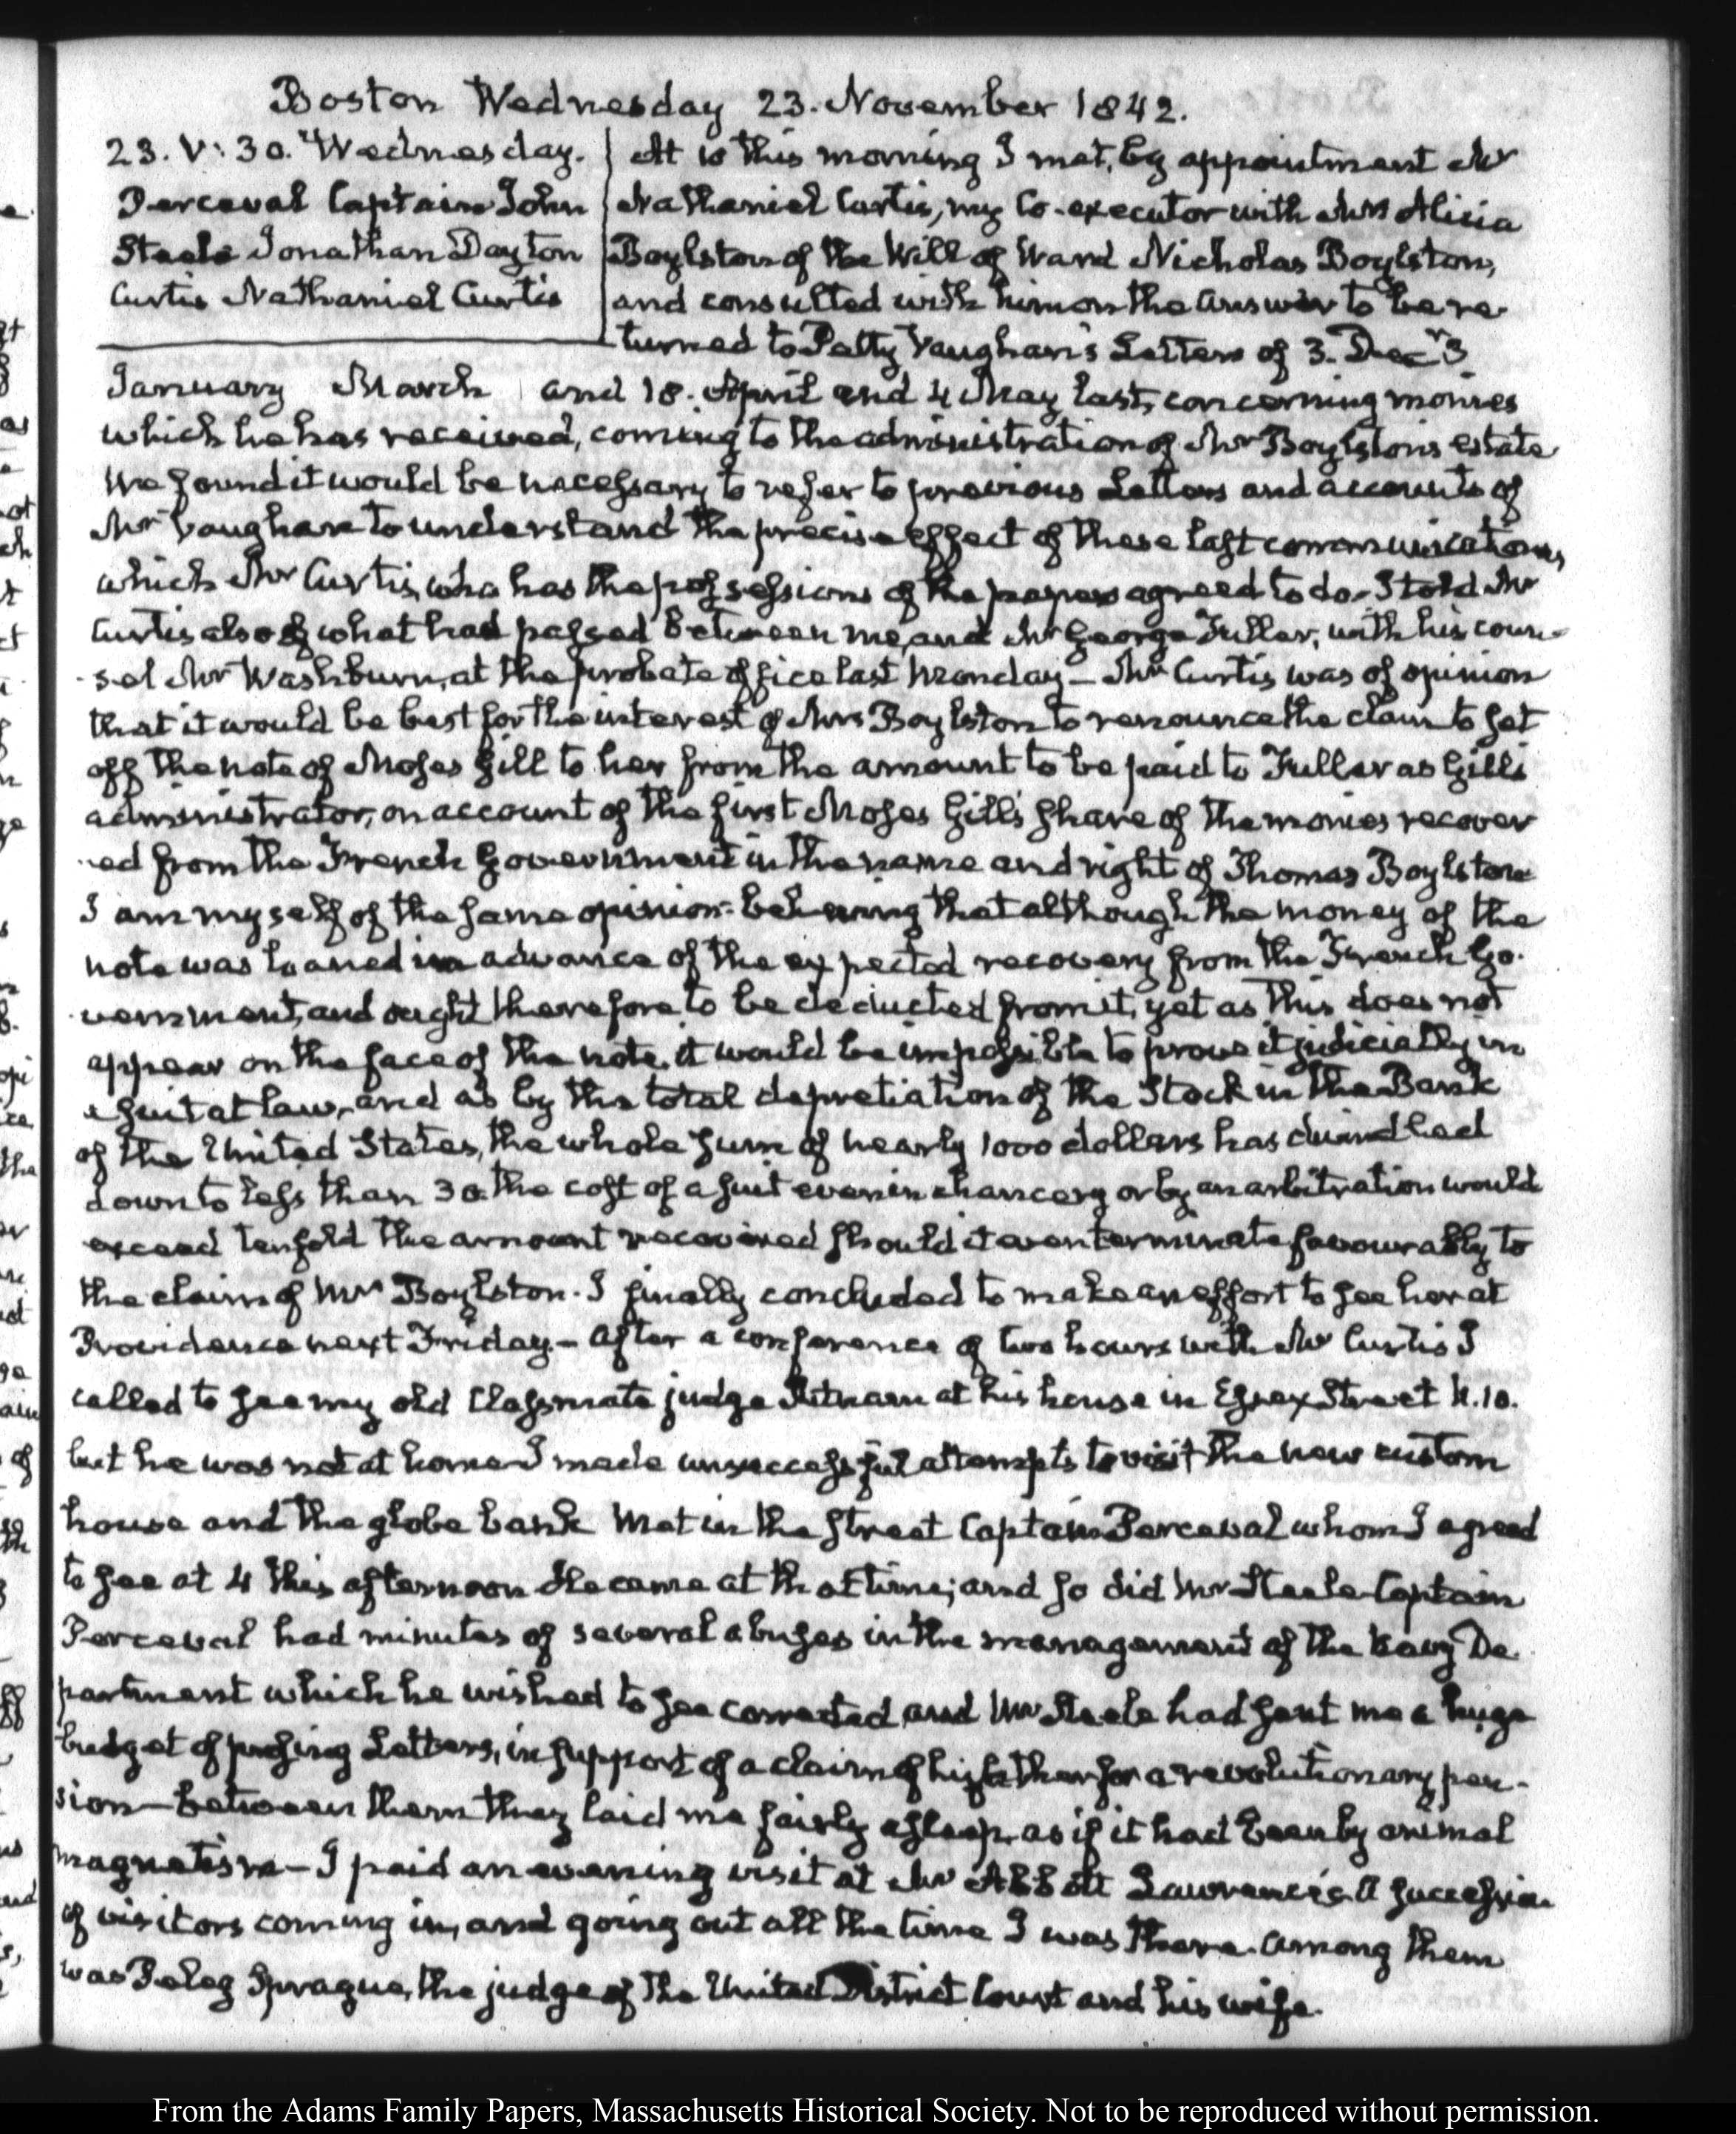 Boston Wednesday 23. November 1842.
23. V: 30. Wednesday.
Perceval Captain John
Steele Jonathan Dayton
Curtis Nathaniel Curtis
At 10 this morning I met, by appointment Mr
Nathaniel Curtis, my Co-executor with Mrs Alicia
Boylston of the Will of Ward Nicholas Boylston,
and consulted with him on the answer to be re-
turned to Petty Vaughan's Letters of 3. Decr 3
January March and 18. April and 4 May last, concerning monies
which he has received, coming to the administration of Mr Boylston's estate
We found it would be necessary to refer to previous Letters and accounts of
Mr Vaughan to understand the precise effect of these last communications,
which Mr Curtis, who has the possessions of the papers agreed to do. I told Mr
Curtis also of what had passed between me, and Mr George Fuller, with his coun-
sel Mr Washburn, at the probate office last Monday – Mr Curtis was of opinion
that it would be best for the interest of Mrs Boylston to renounce the claim to set
off the note of Moses Gill to her from the amount to be paid to Fuller as Gill's
administrator, on account of the first Moses Gill's share of the monies recover
ed from the French Government in the name and right of Thomas Boylston
I am myself of the same opinion. believing that although the money of the
note was loaned in advance of the expected recovery from the French Go-
vernment, and ought therefore to be deducted from it, yet as this does not
appear on the face of the note, it would be impossible to prove it judicially in
a suit at law, and as by the total depretiation of the Stock in the Bank
of the United States, the whole sum of nearly 1000 dollars has dwindled
down to less than 30. the cost of a suit even in chancery or by an arbitration would
exceed tenfold the amount recovered should it even terminate favourably to
the claim of Mrs Boylston. I finally concluded to make an effort to see her at
Providence next Friday – After a conference of two hours with Mr Curtis I
called to see my old Classmate judge Putnam at his house in Essex Street N. 10.
but he was not at home I made unsuccessful attempts to visit the new custom
house and the globe bank Met in the street Captain Perceval whom I agreed
to see at 4 this afternoon He came at that time; and so did Mr Steele Captain
Perceval had minutes of several abuses in the management of the Navy De
partment which he wished to see corrected, and Mr Steele had sent me a huge
budget of prosing Letters, in support of a claim of his father for a revolutionary pen-
sion – between them they laid me fairly asleep, as if it had been by animal
magnetism – I paid an evening visit at Mr Abbott Lawrence's. A succession
of visitors coming in, and going out all the time I was there. Among them
was Peleg Sprague, the judge of the United District Court and his wife.
From the Adams Family Papers, Massachusetts Historical Society. Not to be reproduced without permission.